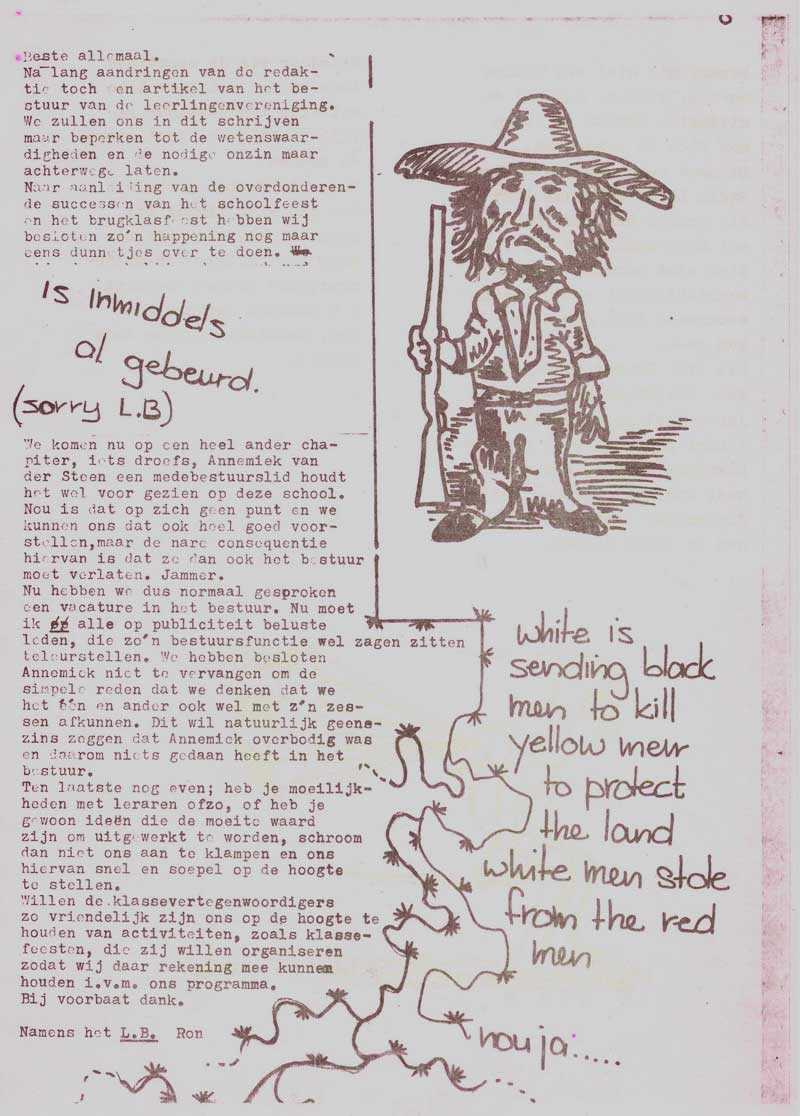 Beste allemaal.
Na lang aandringen van de redak-
tie toch een artikel van het be-
stuur van de leerlingenvereniging.
We zullen ons in dit schrijven
maar beperken tot de wetenswaar-
digheden en de nodige onzin maar
achterwege laten.
Naar aanleiding van de overdonderen-
de successen van het schoolfeest
en het brugklasfeest hebben wij
besloten zo'n happening nog maar
eens dunnetjes over te doen. We
is inmiddels
al gebeurd.
(sorry L.B)
We komen nu op een heel ander cha-
piter, iets droefs, Annemiek van
der Steen een medebestuurslid houdt
het wel voor gezien op deze school.
Nou is dat op zich geen punt en we
kunnen ons dat ook heel goed voor-
stellen,maar de nare consequentie
hiervan is dat ze dan ook het bestuur
moet verlaten. Jammer.
Nu hebben we dus normaal gesproken
een vacature in het bestuur. Nu moet
ik alle op publiciteit beluste
leden, die zo'n bestuursfunctie wel zagen zitten
teleurstellen. We hebben besloten
Annemiek niet te vervangen om de
simpele reden dat we denken dat we
het één en ander ook wel met z'n zes-
sen afkunnen. Dit wil natuurlijk geens-
zins zeggen dat Annemiek overbodig was
en daarom niets gedaan heeft in het
bestuur.
Ten laatste nog even; heb je moeilijk-
heden met leraren ofzo, of heb je
gewoon ideën die de moeite waard
zijn om uitgewerkt te worden, schroom
dan niet ons aan te klampen en ons
hiervan snel en soepel op de hoogte
te stellen.
Willen de klassevertegenwoordigers
zo vriendelijk zijn ons op de hoogte te
houden van activiteiten, zoals klasse-
feesten, die zij willen organiseren
zodat wij daar rekening mee kunnen
houden i.v.m. ons programma.
Bij voorbaat dank.
Namens het L.B. Ron
white is
sending black
men to kill
yellow men
to protect
the land
white men stole
from the red
men
nou ja.....